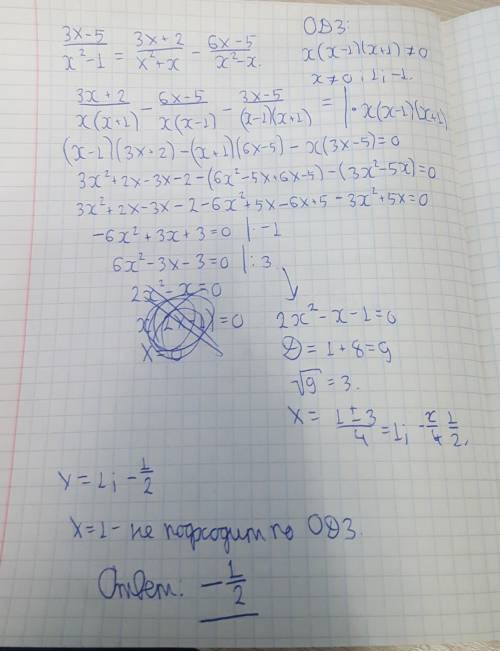 (3x-5)/(x²-1) = (3x+2)/(x²+x) - (6x-5)/(x²-x)
ОДЗ:
x(x-1)(x+1)≠0
x≠0; 1; -1.
(3x+2)/(x(x+1)) - (6x-5)/(x(x-1)) - (3x-5)/((x-1)(x+1)) = | · x(x-1)(x+1)
(x-1)(3x+2)-(x+1)(6x-5)-x(3x-5)=0
3x²+2x-3x-2-(6x²-5x+6x-5)-(3x²-5x)=0
3x²+2x-3x-2-6x²+5x-6x+5-3x²+5x=0
-6x²+3x+3=0 |: -1
6x²-3x-3=0 |: 3
2x²-x=0
x(2x-1)=0
x=0
2x²-x-1=0
D=1+8=9
√9=3.
x= (1±3)/4 =1; -1/2.
x=1; -1/2
x=1- не подходит по ОДЗ.
Ответ: -1/2